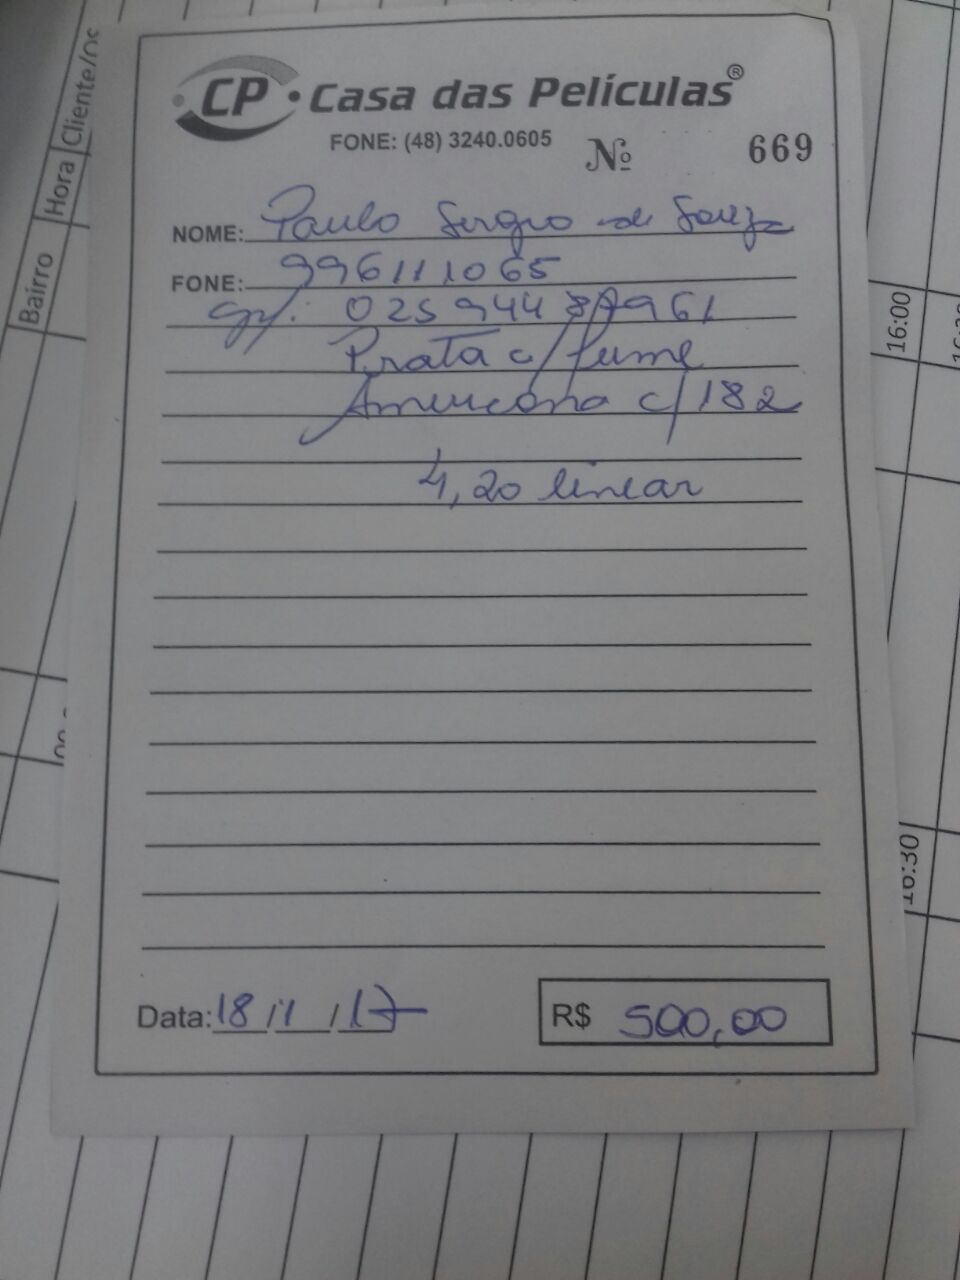 CP Casa das Películas®
FONE: (48) 3240.0605
Nº 669
NOME: Paulo Sergio de Souza
FONE: 996111065
025944 961
Prata c/ fume
Americana c/ 182
4,20 linear
Data: 18/1/17
R$ 500,00
Bairro
Hora
Cliente/
16:00
16:30